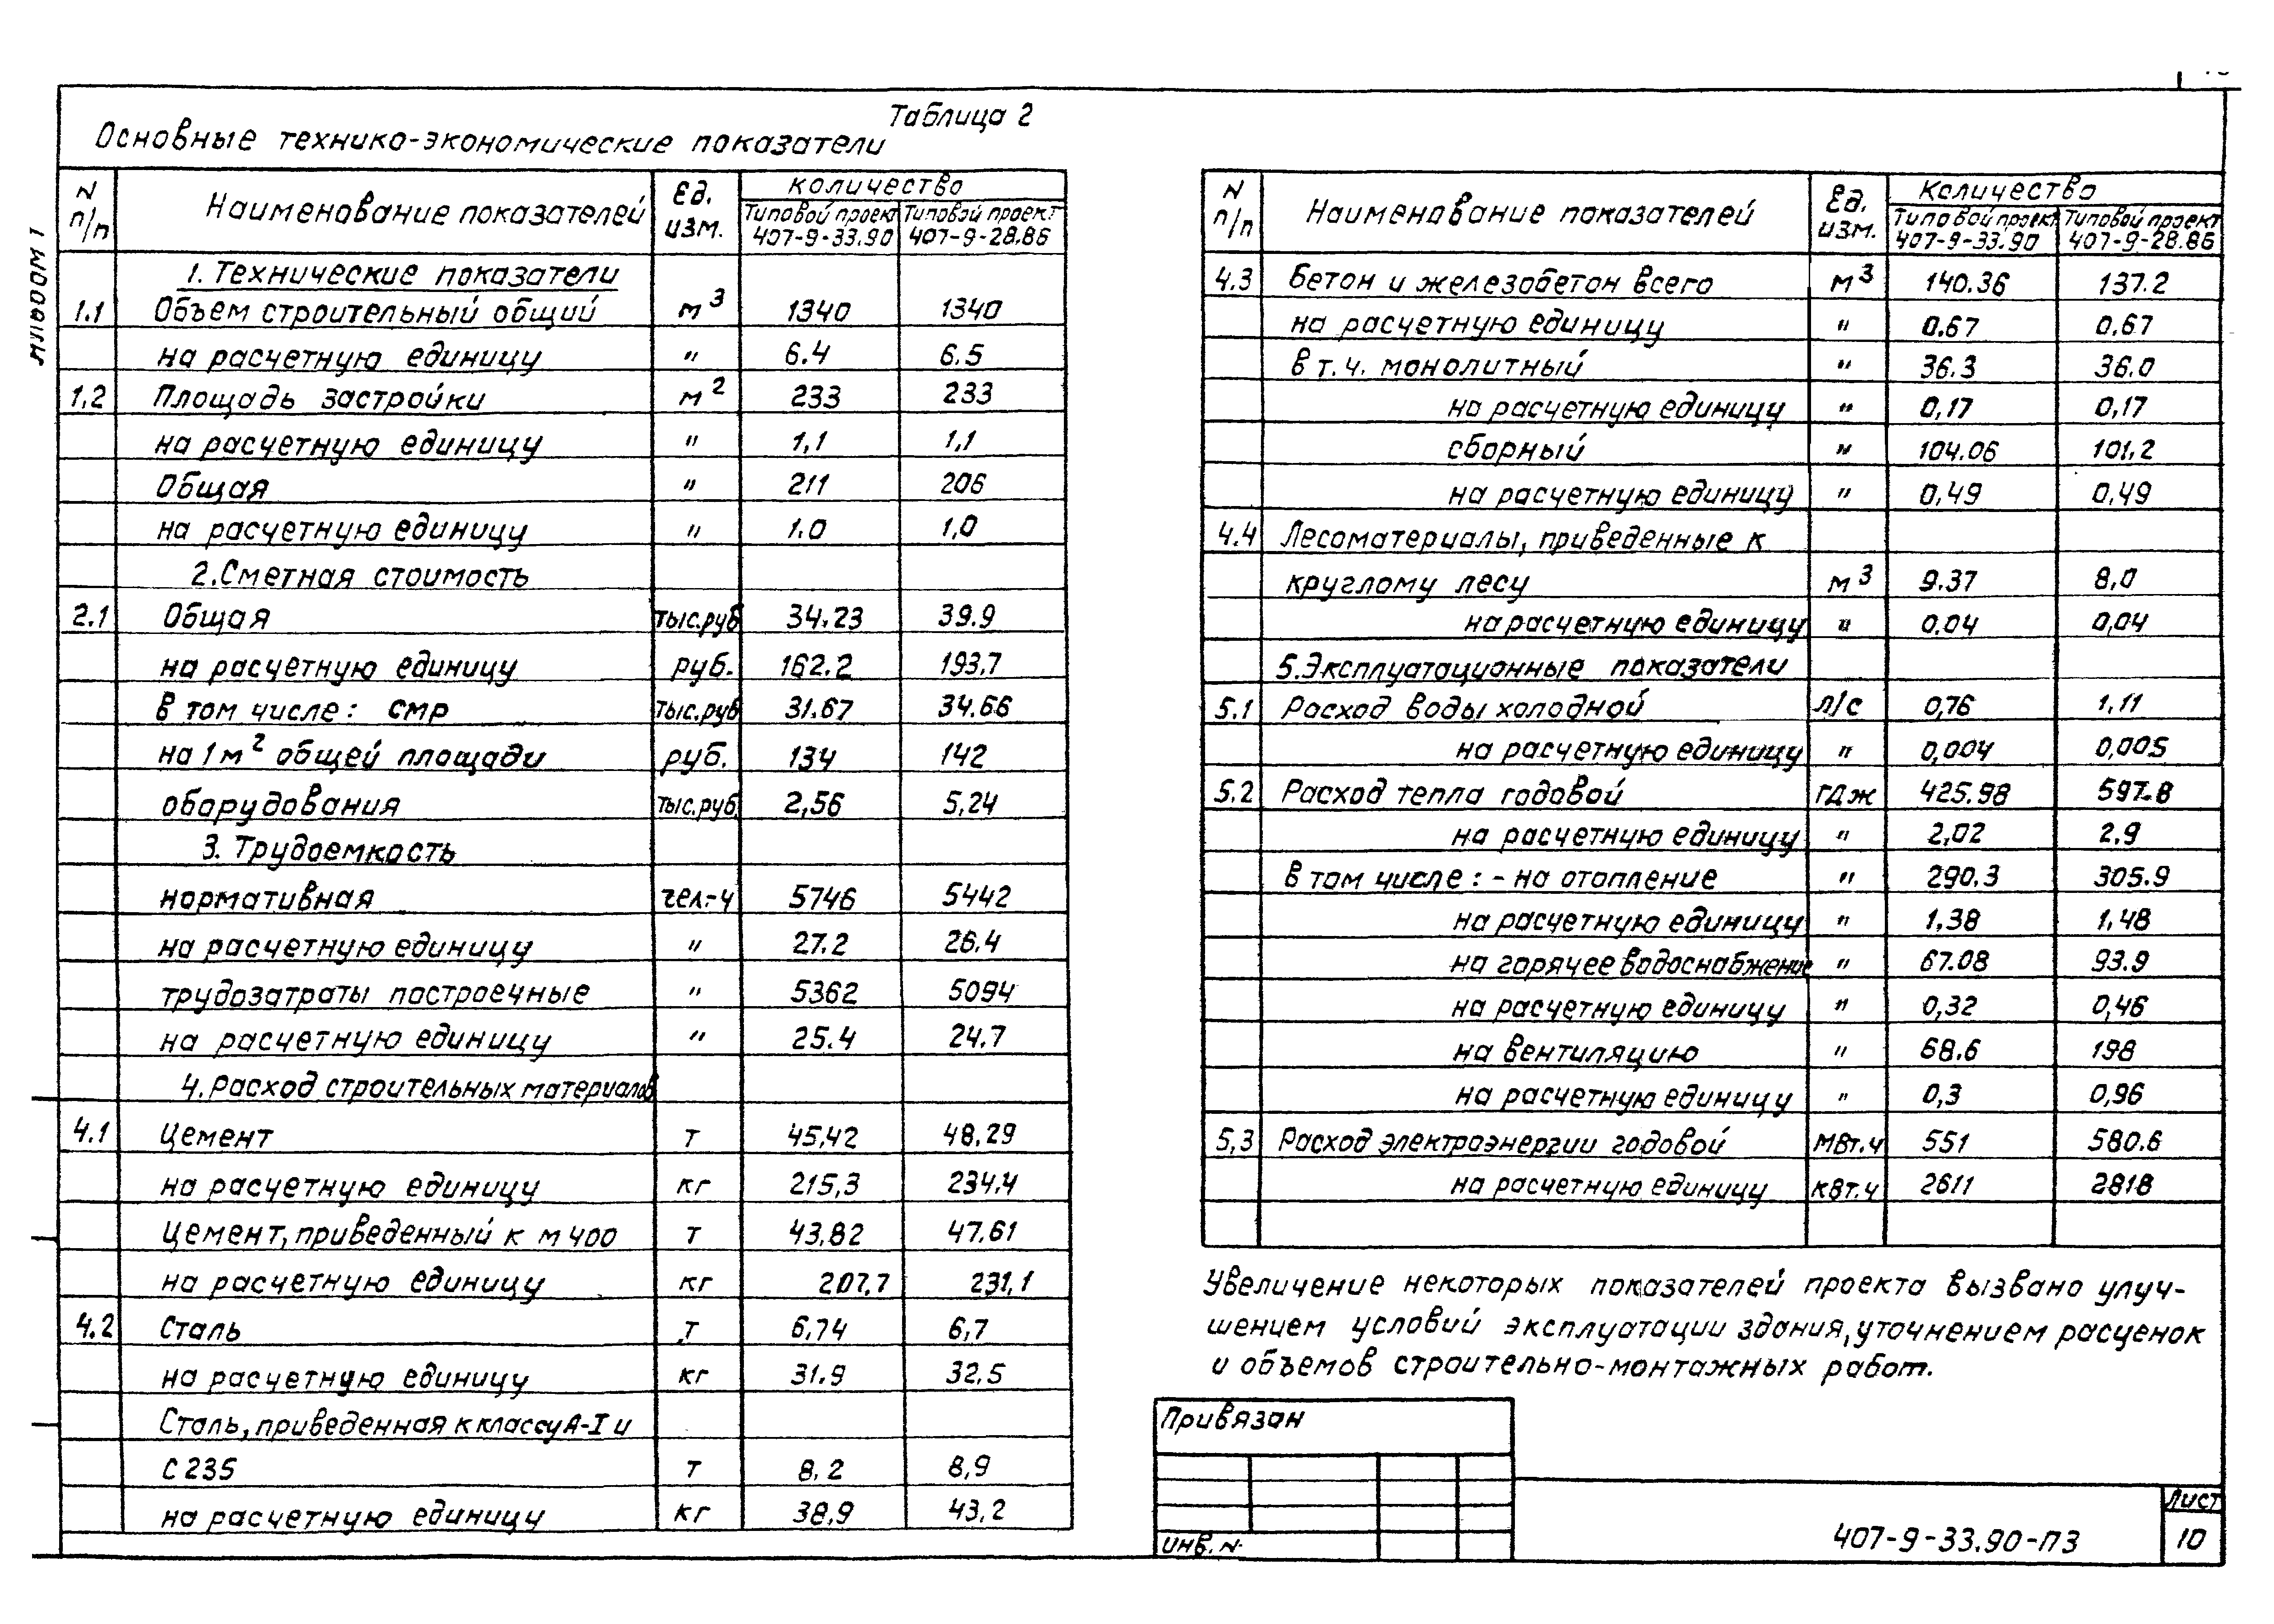 Таблица 2
Основные технико-экономические показатели
N п/п Наименование показателей Ед. изм. Количество
Типовой проект 407-9-33.90 Типовой проект 407-9-28.86
1. Технические показатели
1.1 Объем строительный общий м3 1340 1340
на расчетную единицу " 6.4 6.5
1.2 Площадь застройки м2 233 233
на расчетную единицу " 1,1 1,1
Общая " 211 206
на расчетную единицу " 1.0 1,0
2. Сметная стоимость
2.1 Общая тыс.руб 34.23 39.9
на расчетную единицу руб. 162.2 193,7
в том числе: смр тыс.руб 31.67 34.66
на 1м2 общей площади руб. 134 142
оборудования тыс.руб. 2,56 5,24
3. Трудоемкость
нормативная чел.-ч 5746 5442
на расчетную единицу " 27.2 26.4
трудозатраты построечные " 5362 5094
на расчетную единицу " 25.4 24.7
4. Расход строительных материалов
4.1 Цемент т 45,42 48,29
на расчетную единицу кг 215,3 234,4
Цемент, приведенный к м 400 т 43,82 47,61
на расчетную единицу кг 207,7 231,1
4.2 Сталь т 6,74 6,7
на расчетную единицу кг 31.9 32,5
Сталь, приведенная к классу А-I и
С 235 т 8,2 8,9
на расчетную единицу кг 38,9 43,2
N п/п Наименование показателей Ед. изм. Количество
Типовой проект 407-9-33.90 Типовой проект 407-9-28.86
4.3 Бетон и железобетон всего м3 140.36 137.2
на расчетную единицу " 0.67 0,67
в т.ч. монолитный " 36.3 36.0
на расчетную единицу " 0,17 0,17
сборный " 104.06 101,2
на расчетную единицу " 0,49 0,49
4.4 Лесоматериалы, приведенные к
круглому лесу м3 9.37 8,0
на расчетную единицу " 0.04 0,04
5. Эксплуатационные показатели
5.1 Расход воды холодной л/с 0,76 1,11
на расчетную единицу " 0,004 0,005
5.2 Расход тепла годовой ГДж 425.98 597.8
на расчетную единицу " 2,02 2,9
в том числе: - на отопление " 290.3 305.9
на расчетную единицу " 1,38 1,48
на горячее водоснабжение " 67.08 93.9
на расчетную единицу " 0,32 0,46
на вентиляцию " 68.6 198
на расчетную единицу " 0,3 0,96
5,3 Расход электроэнергии годовой МВт.ч 551 580.6
на расчетную единицу кВт.ч 2611 2818
Увеличение некоторых показателей проекта вызвано улуч-
шением условий эксплуатации здания, уточнением расценок
и объемов строительно-монтажных работ.
Привязан
инв. N
407-9-33.90-ПЗ
Лист
10